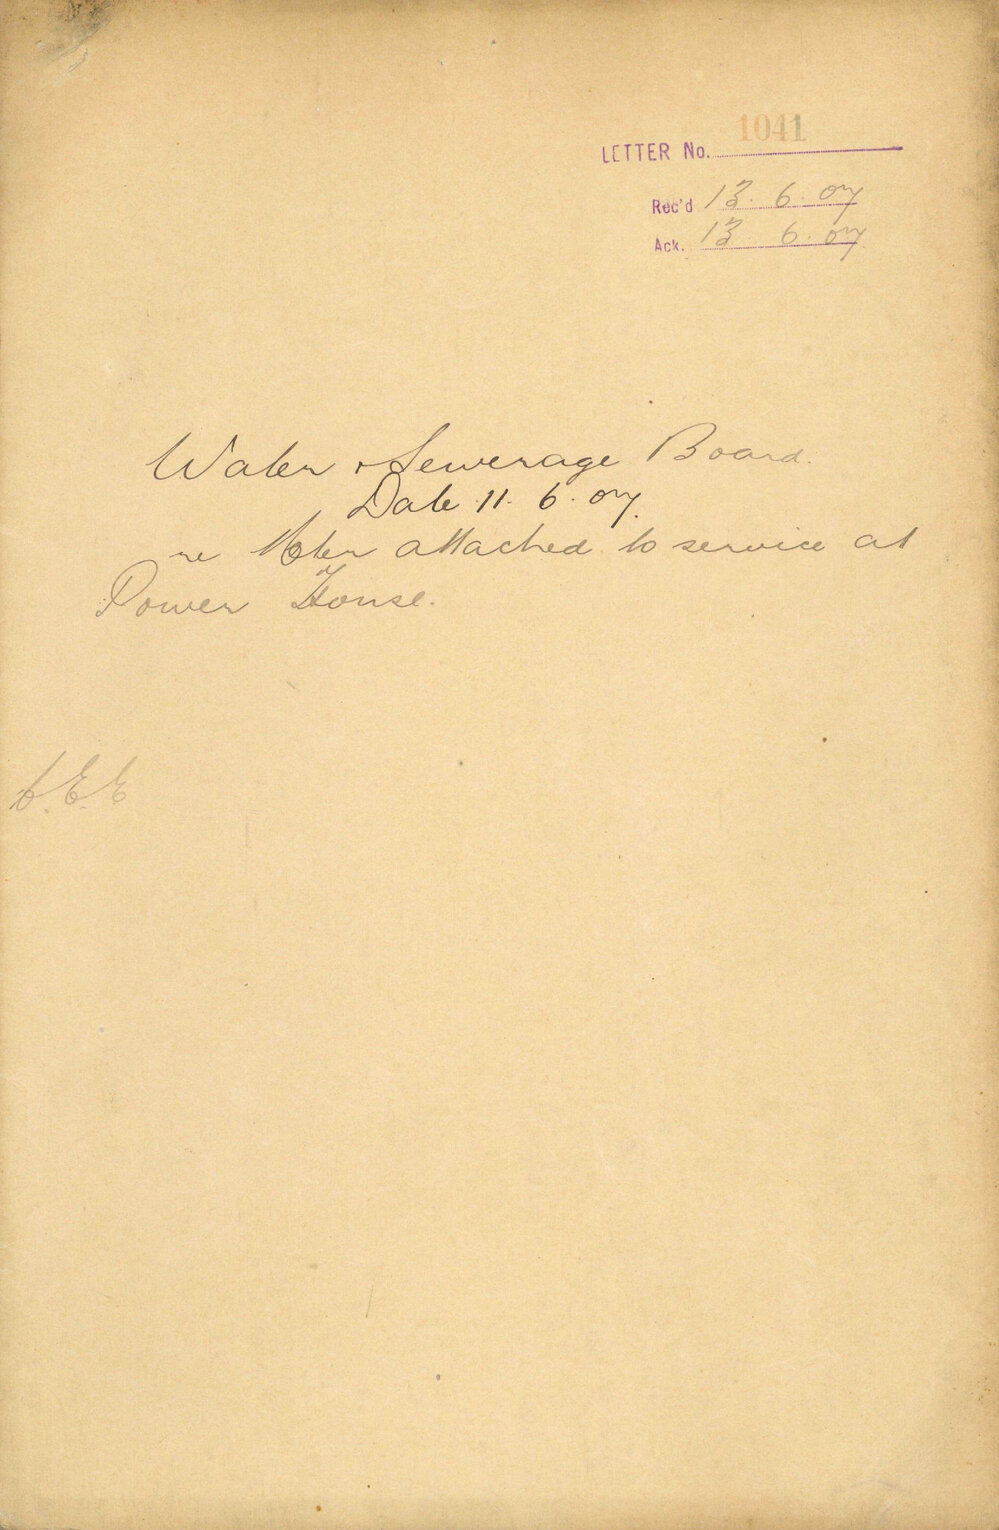 LETTER No. 1041
Rec'd 13. 6. 07
Ack. 13 6. 07
Water & Sewerage Board.
Date 11. 6. 07.
re Meter attached to service at
Power House.
E.E